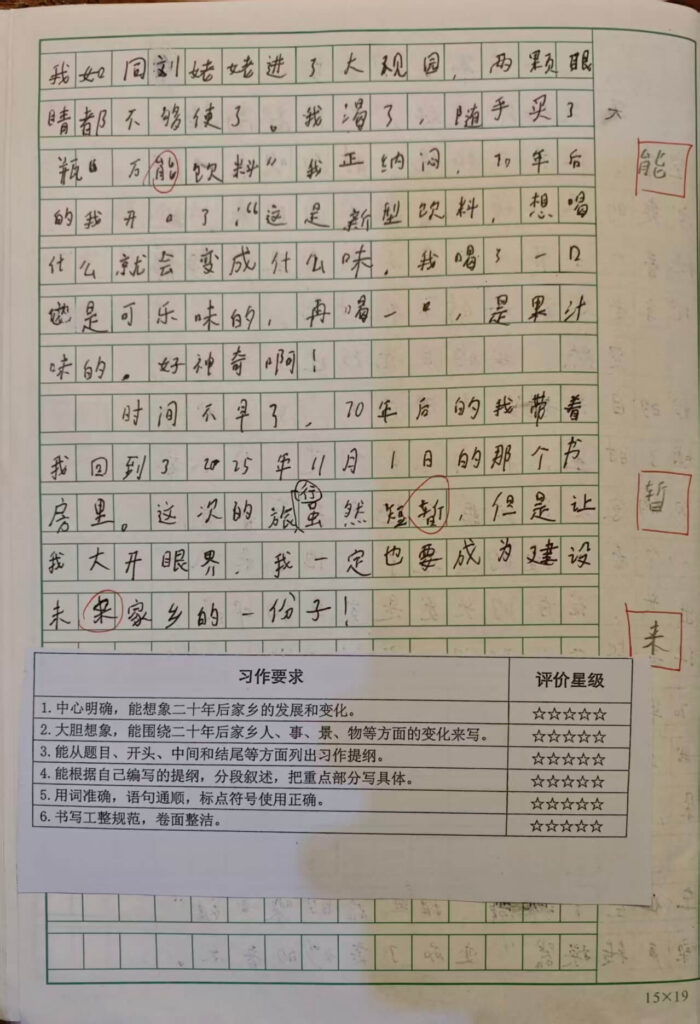 我如同刘姥姥进了大观园，两颗眼
睛都不够使了。我渴了，随手买了
瓶“万能饮料”我正纳闷，20年后
的我开口了：“这是新型饮料，想喝
什么就会变成什么味，我喝了一口
是可乐味的，再喝一口，是果汁
味的。好神奇啊！
时间不早了，20年后的我带着
我回到了2025年11月1日的那个书
房里。这次的旅行虽然短暂，但是让
我大开眼界，我一定也要成为建设
未来家乡的一份子！
能
暂
来
习作要求 评价星级
1. 中心明确，能想象二十年后家乡的发展和变化。 ☆☆☆☆☆
2. 大胆想象，能围绕二十年后家乡人、事、景、物等方面的变化来写。 ☆☆☆☆☆
3. 能从题目、开头、中间和结尾等方面列出习作提纲。 ☆☆☆☆☆
4. 能根据自己编写的提纲，分段叙述，把重点部分写具体。 ☆☆☆☆☆
5. 用词准确，语句通顺，标点符号使用正确。 ☆☆☆☆☆
6. 书写工整规范，卷面整洁。 ☆☆☆☆☆
15×19